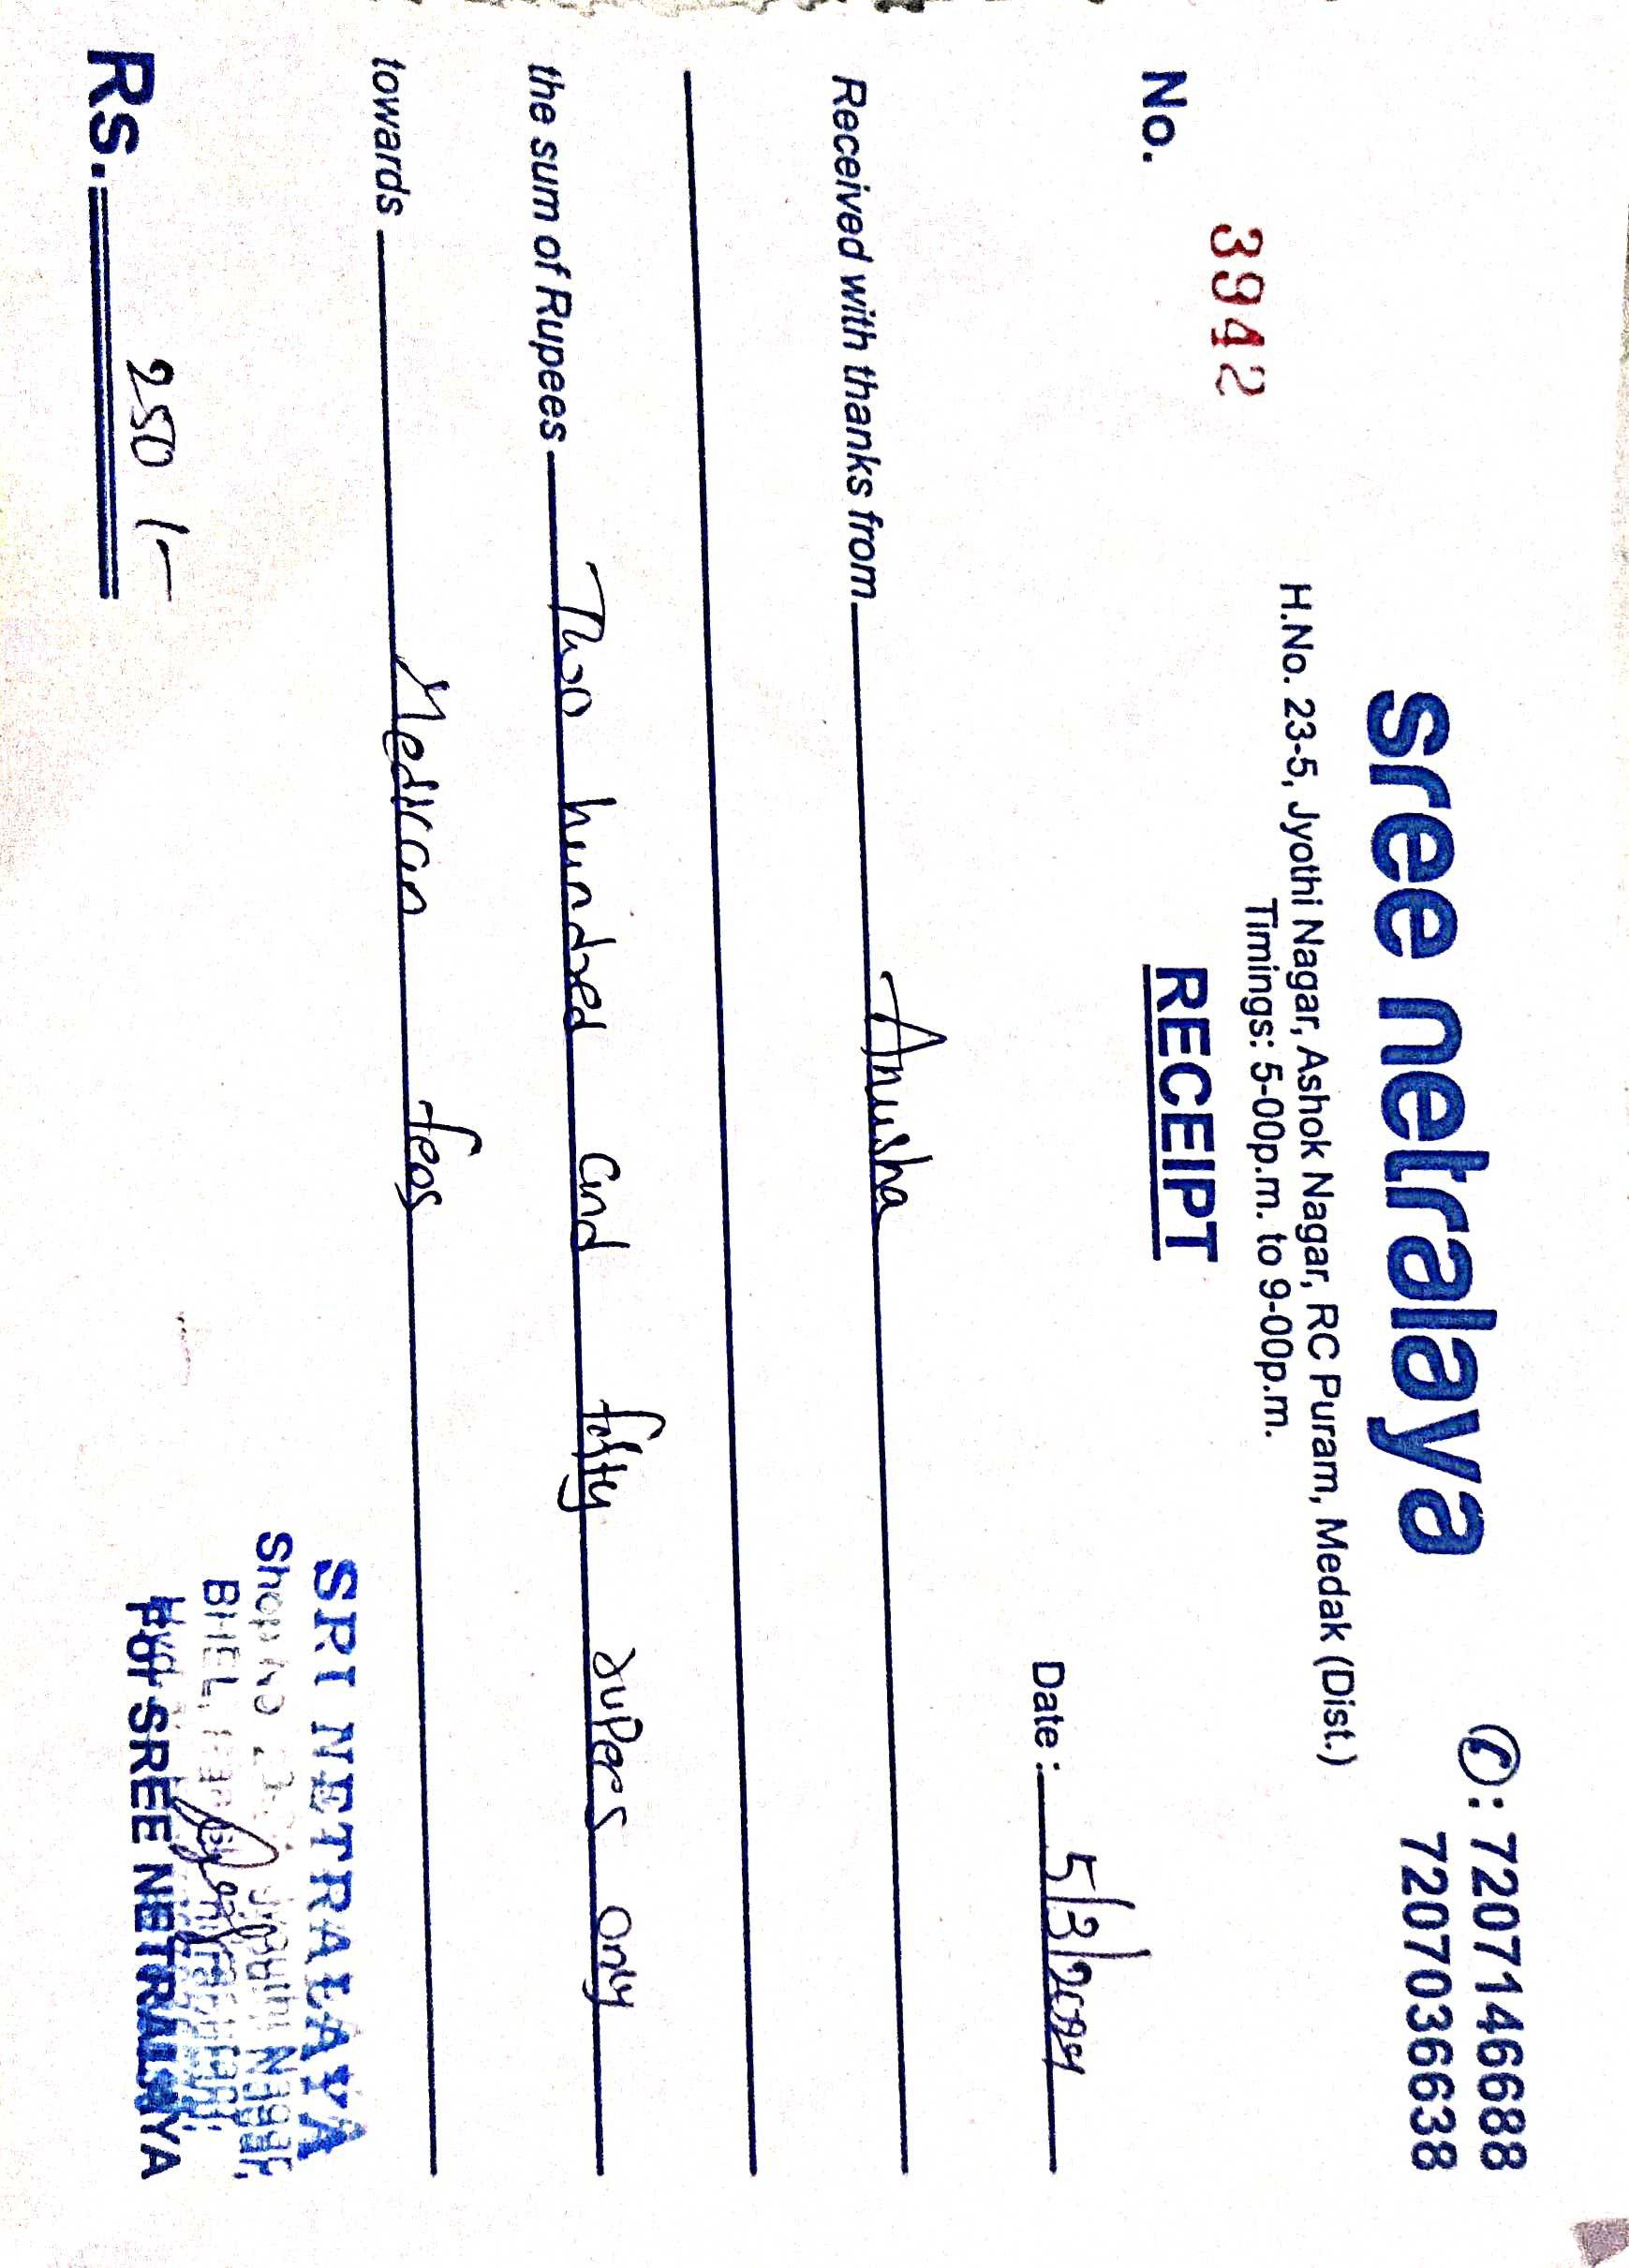 sree netralaya
✆: 7207146688
7207036638
H.No. 23-5, Jyothi Nagar, Ashok Nagar, RC Puram, Medak (Dist.)
Timings: 5-00p.m. to 9-00p.m.
No. 3942
RECEIPT
Date : 5/3/2024
Received with thanks from Anusha
the sum of Rupees Thoo hundred and fifty rupees only
towards Medican fees
Rs. 250/-
SRI NETRALAYA
Shop No Jyothi Nagar,
BHEL
For SREE NETRALAYA